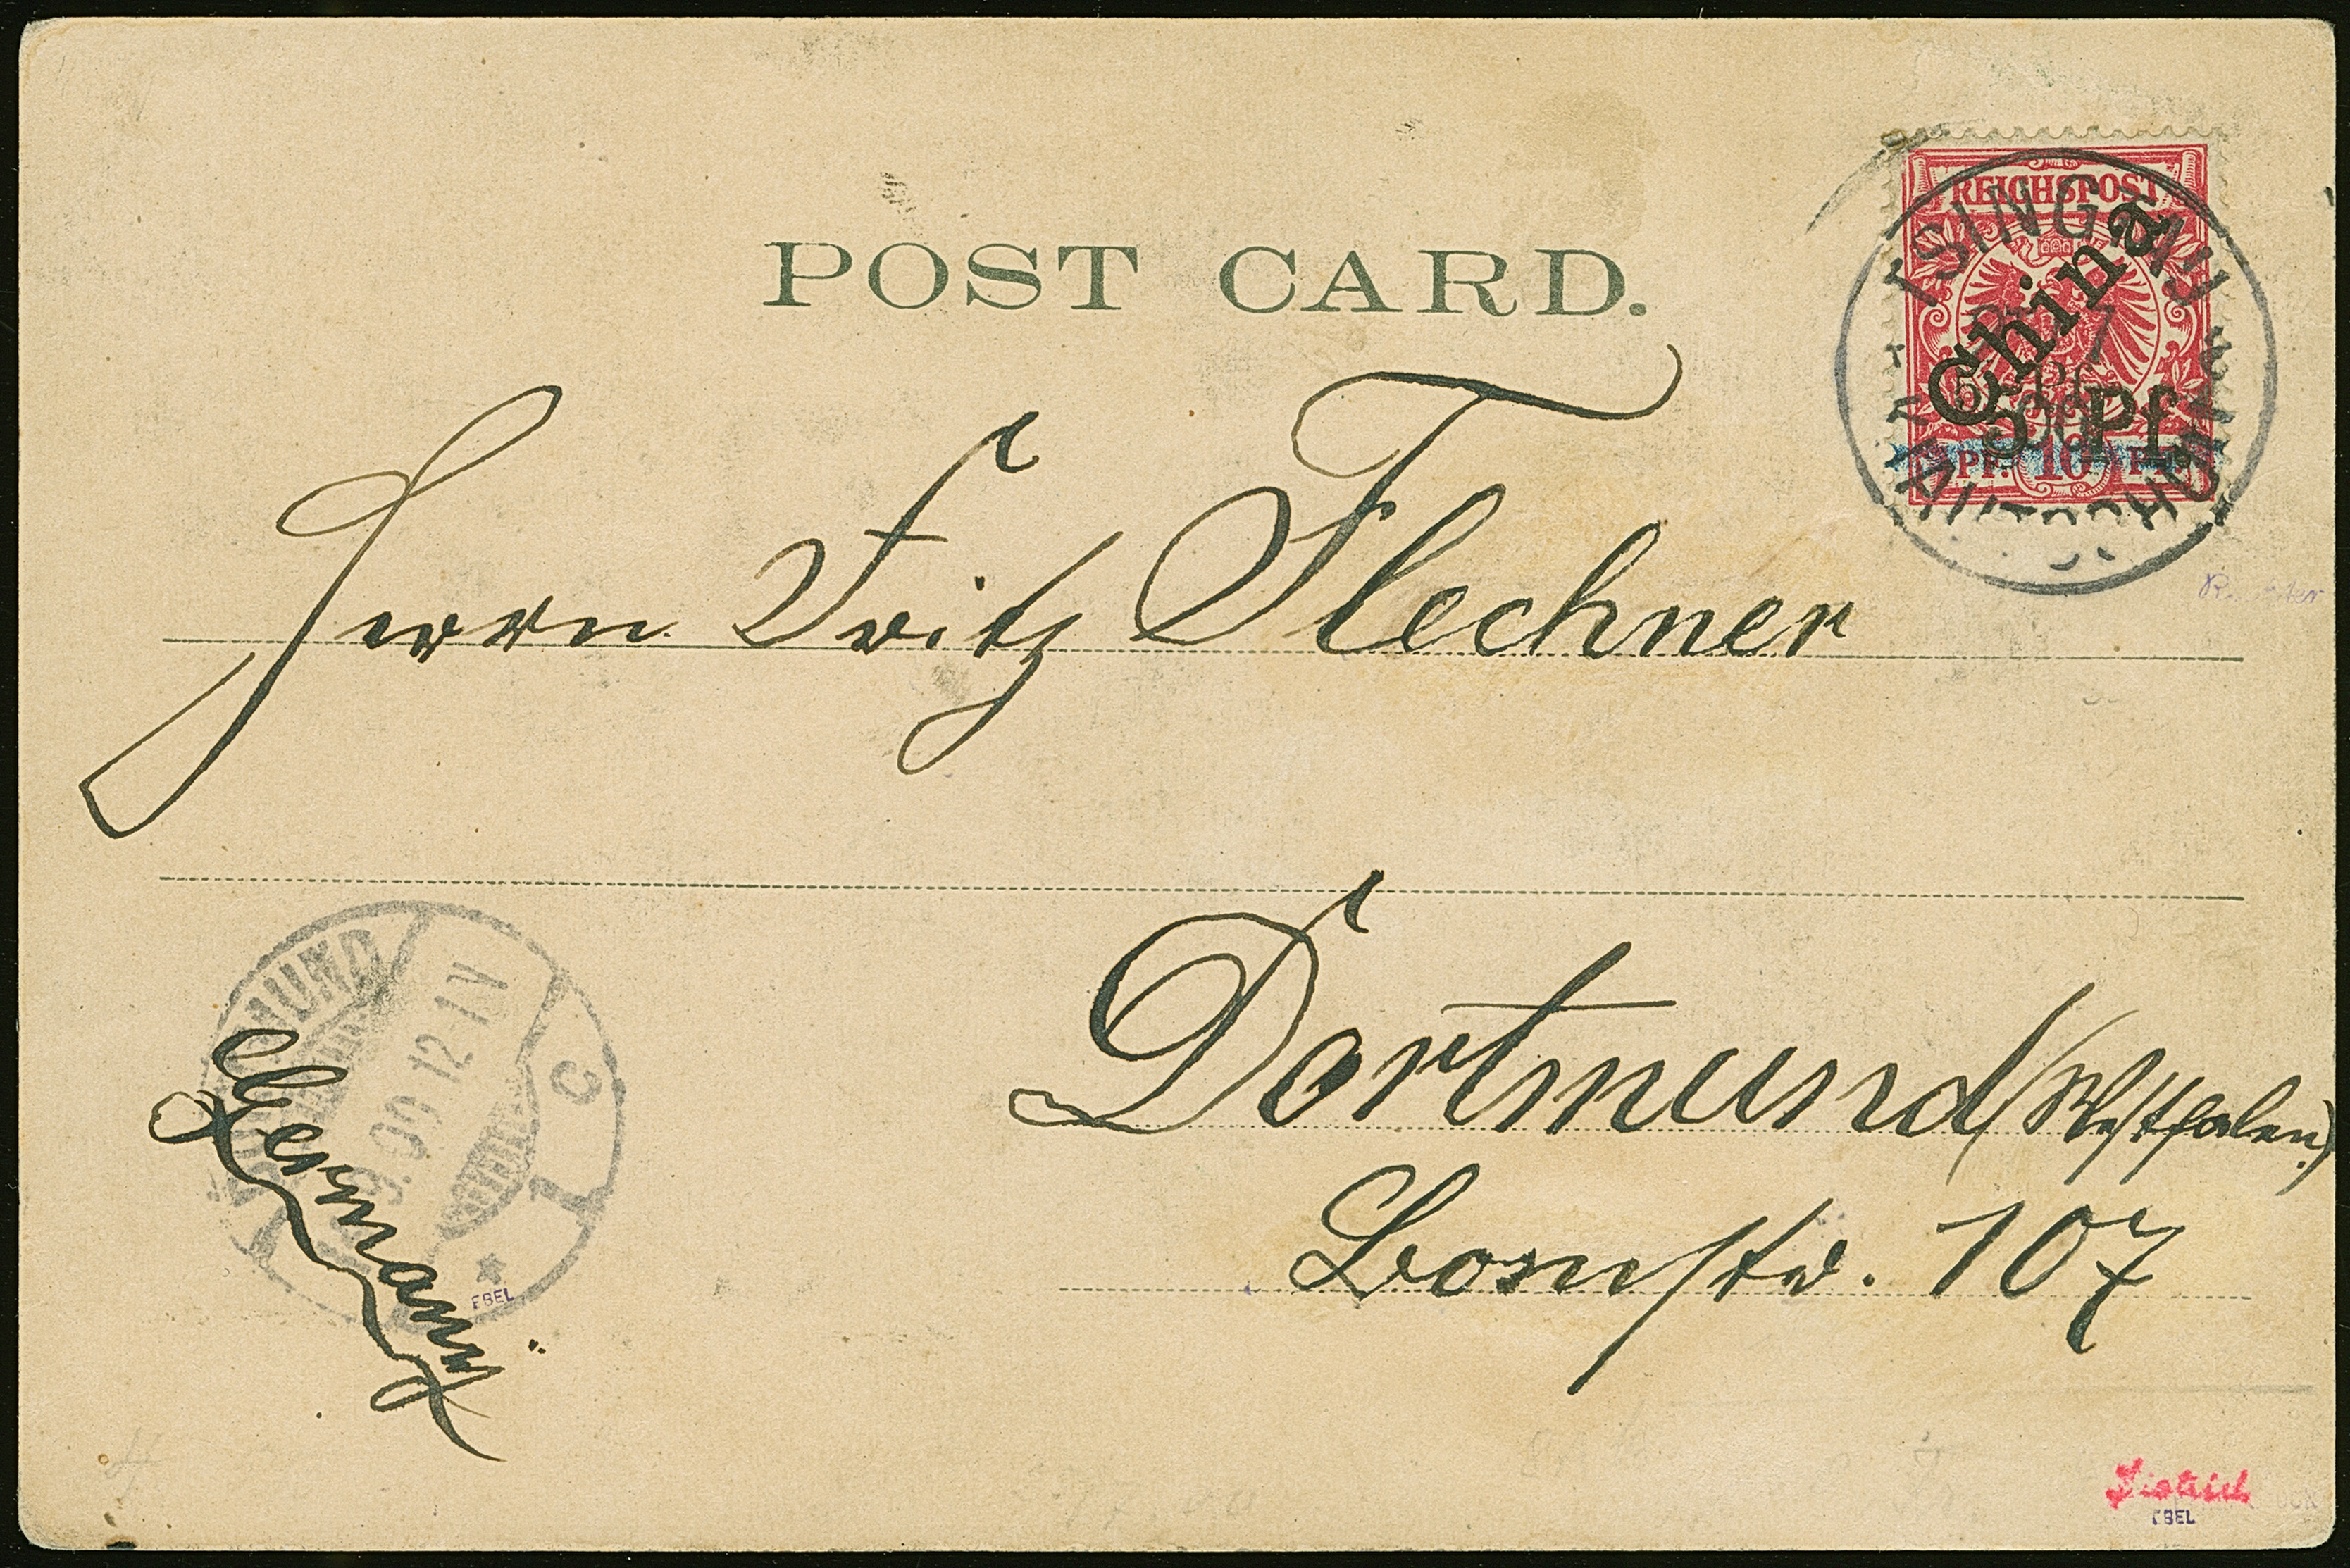 POST CARD.
REICHSPOST
China
5 Pf.
5 Pf.
PF. 10 PF.
TSINGTAU
KIAUTSCHOU
Herrn Fritz Flechner
Dortmund (Westfalen)
Bornstr. 107
DORTMUND
9.00 12-1N
C
1
Germany
EBEL
EBEL